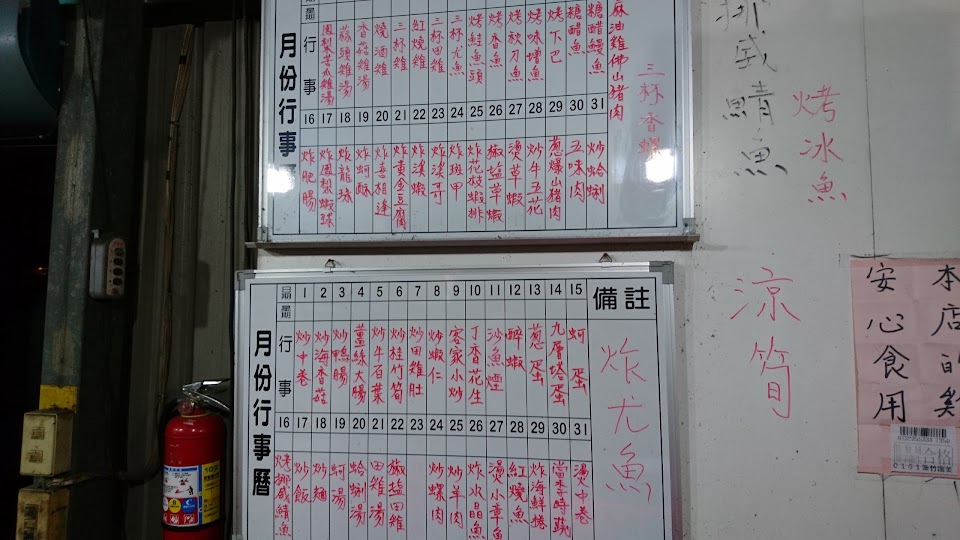 期
月份行事
行事
鳳梨苦瓜雞湯
蒜頭雞湯
香菇雞湯
燒酒雞
三杯雞
紅燒雞
三杯田雞
三杯尤魚
烤鮭魚頭
烤香魚
烤秋刀魚
烤味增魚
烤下巴
糖醋魚
糖醋鰻魚
麻油雞佛山豬肉
三杯香螺
16 17 18 19 20 21 22 23 24 25 26 27 28 29 30 31
炸肥腸
炸鳳梨蝦球
炸龍珠
炸蚵酥
炸吾相逢
炸黃金豆腐
炸溪蝦
炸溪哥
炸斑甲
炸花枝蝦排
椒塩草蝦
燙草蝦
炒牛五花
蔥爆山豬肉
五味肉
炒蛤蜊
挪威鯖魚
烤冰魚
涼筍
月份行事曆
日期 1 2 3 4 5 6 7 8 9 10 11 12 13 14 15 備註
星期
行事
炒中卷
炒海香菇
炒鴨腸
薑絲大腸
炒牛百葉
炒桂竹筍
炒田雞肚
炒蝦仁
客家小炒
丁香花生
沙魚煙
醉蝦
蔥蛋
九層塔蛋
蚵蛋
炸尤魚
16 17 18 19 20 21 22 23 24 25 26 27 28 29 30 31
烤挪威鯖魚
炒飯
炒麵
蚵湯
蛤蜊湯
田雞湯
椒塩田雞
炒螺肉
炒羊肉
炸水晶魚
燙小章魚
紅燒魚
炸海鮮捲
當季時蔬
燙中卷
本店的雞
安心食用
合格